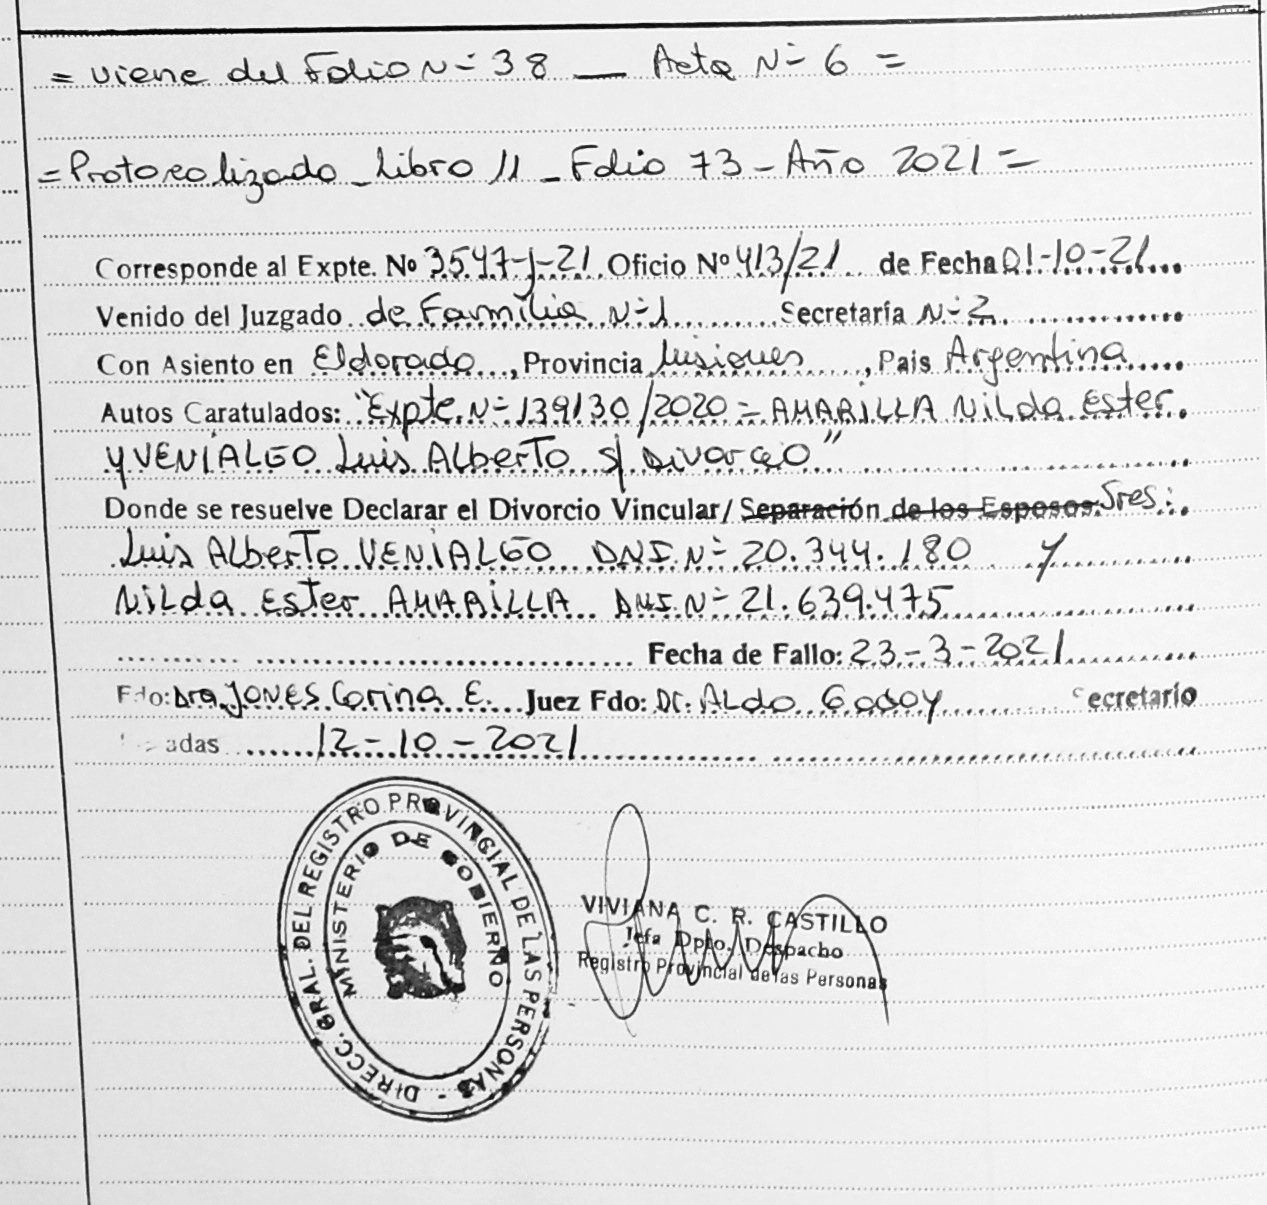 = viene del Folio N= 38 — Acta N= 6 =
= Protocolizado - Libro 11 - Folio 73 - Año 2021 =
Corresponde al Expte. Nº 3547-J-21 Oficio Nº 413/21 de Fecha 01-10-21
Venido del Juzgado de Familia N=1 Secretaría N=2
Con Asiento en Eldorado, Provincia Misiones, Pais Argentina
Autos Caratulados: "Expte. N= 139130/2020 = AMARILLA Nilda Ester
y VENIALGO Luis Alberto s/ Divorcio"
Donde se resuelve Declarar el Divorcio Vincular/ Separación de los Esposos: Sres:
Luis Alberto VENIALGO DNI. N= 20.344.180 y
Nilda Ester AMARILLA DNI. N= 21.639.475
Fecha de Fallo: 23-3-2021
Fdo: Dra. JONES Corina E. Juez Fdo: Dr. Aldo Godoy Secretario
adas 12-10-2021
DIRECC. GRAL. DEL REGISTRO PROVINCIAL DE LAS PERSONAS -
MINISTERIO DE GOBIERNO
VIVIANA C. R. CASTILLO
Jefa Dpto. Despacho
Registro Provincial de las Personas